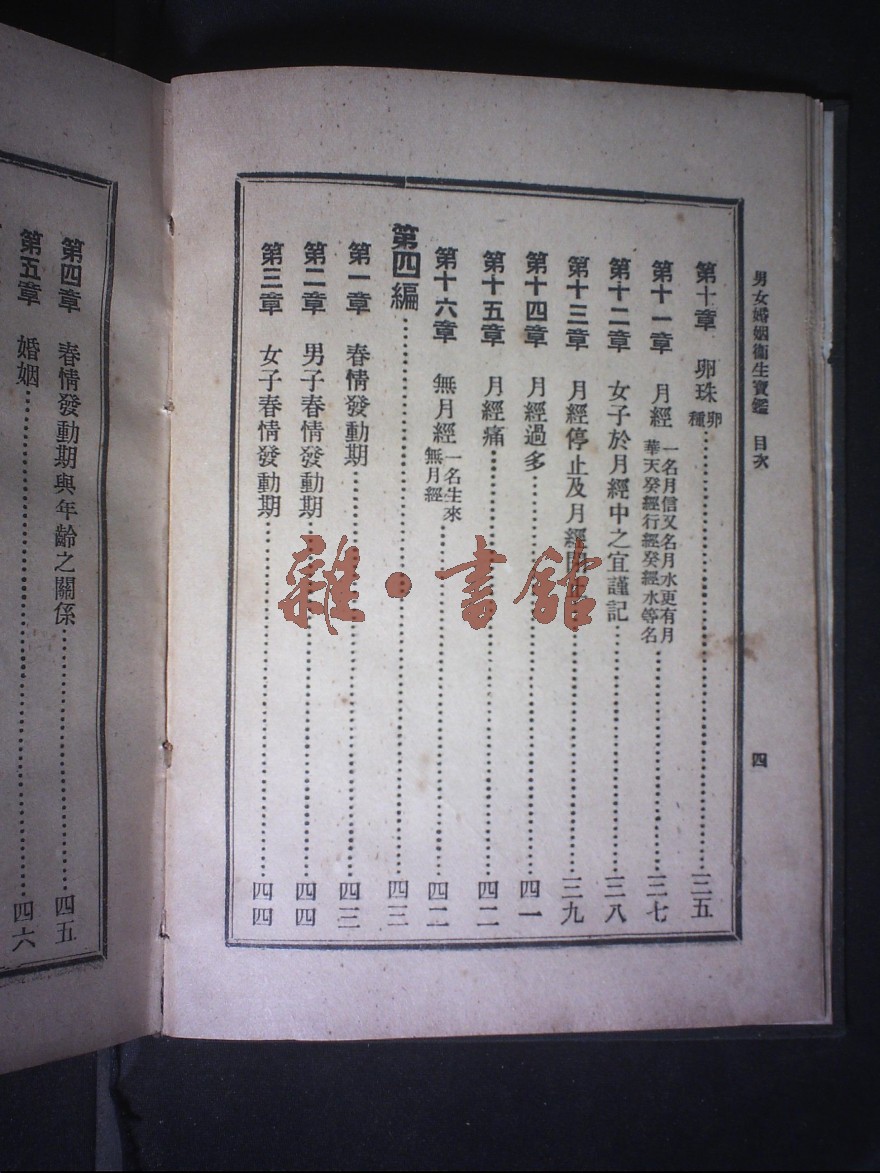 男女婚姻衛生寶鑑 目次 四
第十章 卵珠 卵種 三五
第十一章 月經 一名月信又名月水更有月華天癸經行經癸經水等名 三七
第十二章 女子於月經中之宜謹記 三八
第十三章 月經停止及月經閉止 三九
第十四章 月經過多 四一
第十五章 月經痛 四二
第十六章 無月經 一名生來無月經 四二
第四編 四三
第一章 春情發動期 四三
第二章 男子春情發動期 四四
第三章 女子春情發動期 四四
第四章 春情發動期與年齡之關係 四五
第五章 婚姻 四六
雜·書館